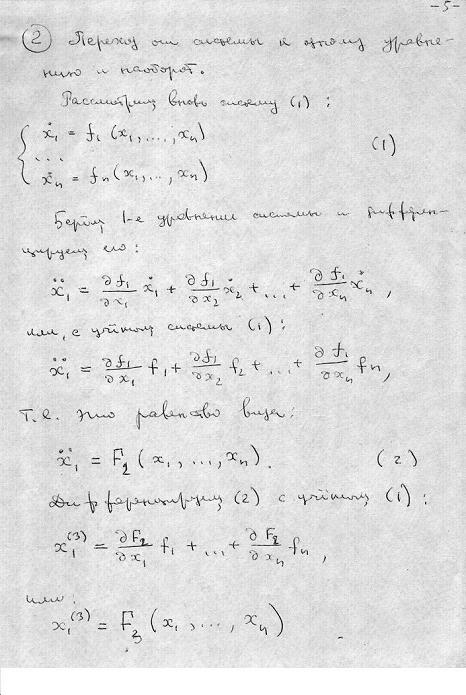 -5-
② Переход от системы к одному уравне-
нию и наоборот.
Рассмотрим вновь систему (1):
{ ẋ₁ = f₁(x₁,...,xₙ)
... (1)
ẋₙ = fₙ(x₁,..,xₙ)
Берём 1-е уравнение системы и дифферен-
цируем его:
ẍ₁ = ∂f₁/∂x₁ ẋ₁ + ∂f₁/∂x₂ ẋ₂ + ... + ∂f₁/∂xₙ ẋₙ,
или, с учётом системы (1):
ẍ₁ = ∂f₁/∂x₁ f₁ + ∂f₁/∂x₂ f₂ + ... + ∂f₁/∂xₙ fₙ,
т.е. это равенство вида:
ẍ₁ = F₂(x₁,...,xₙ). (2)
Дифференцируем (2) с учётом (1):
x₁⁽³⁾ = ∂F₂/∂x₁ f₁ + ... + ∂F₂/∂xₙ fₙ,
или:
x₁⁽³⁾ = F₃(x₁,...,xₙ)